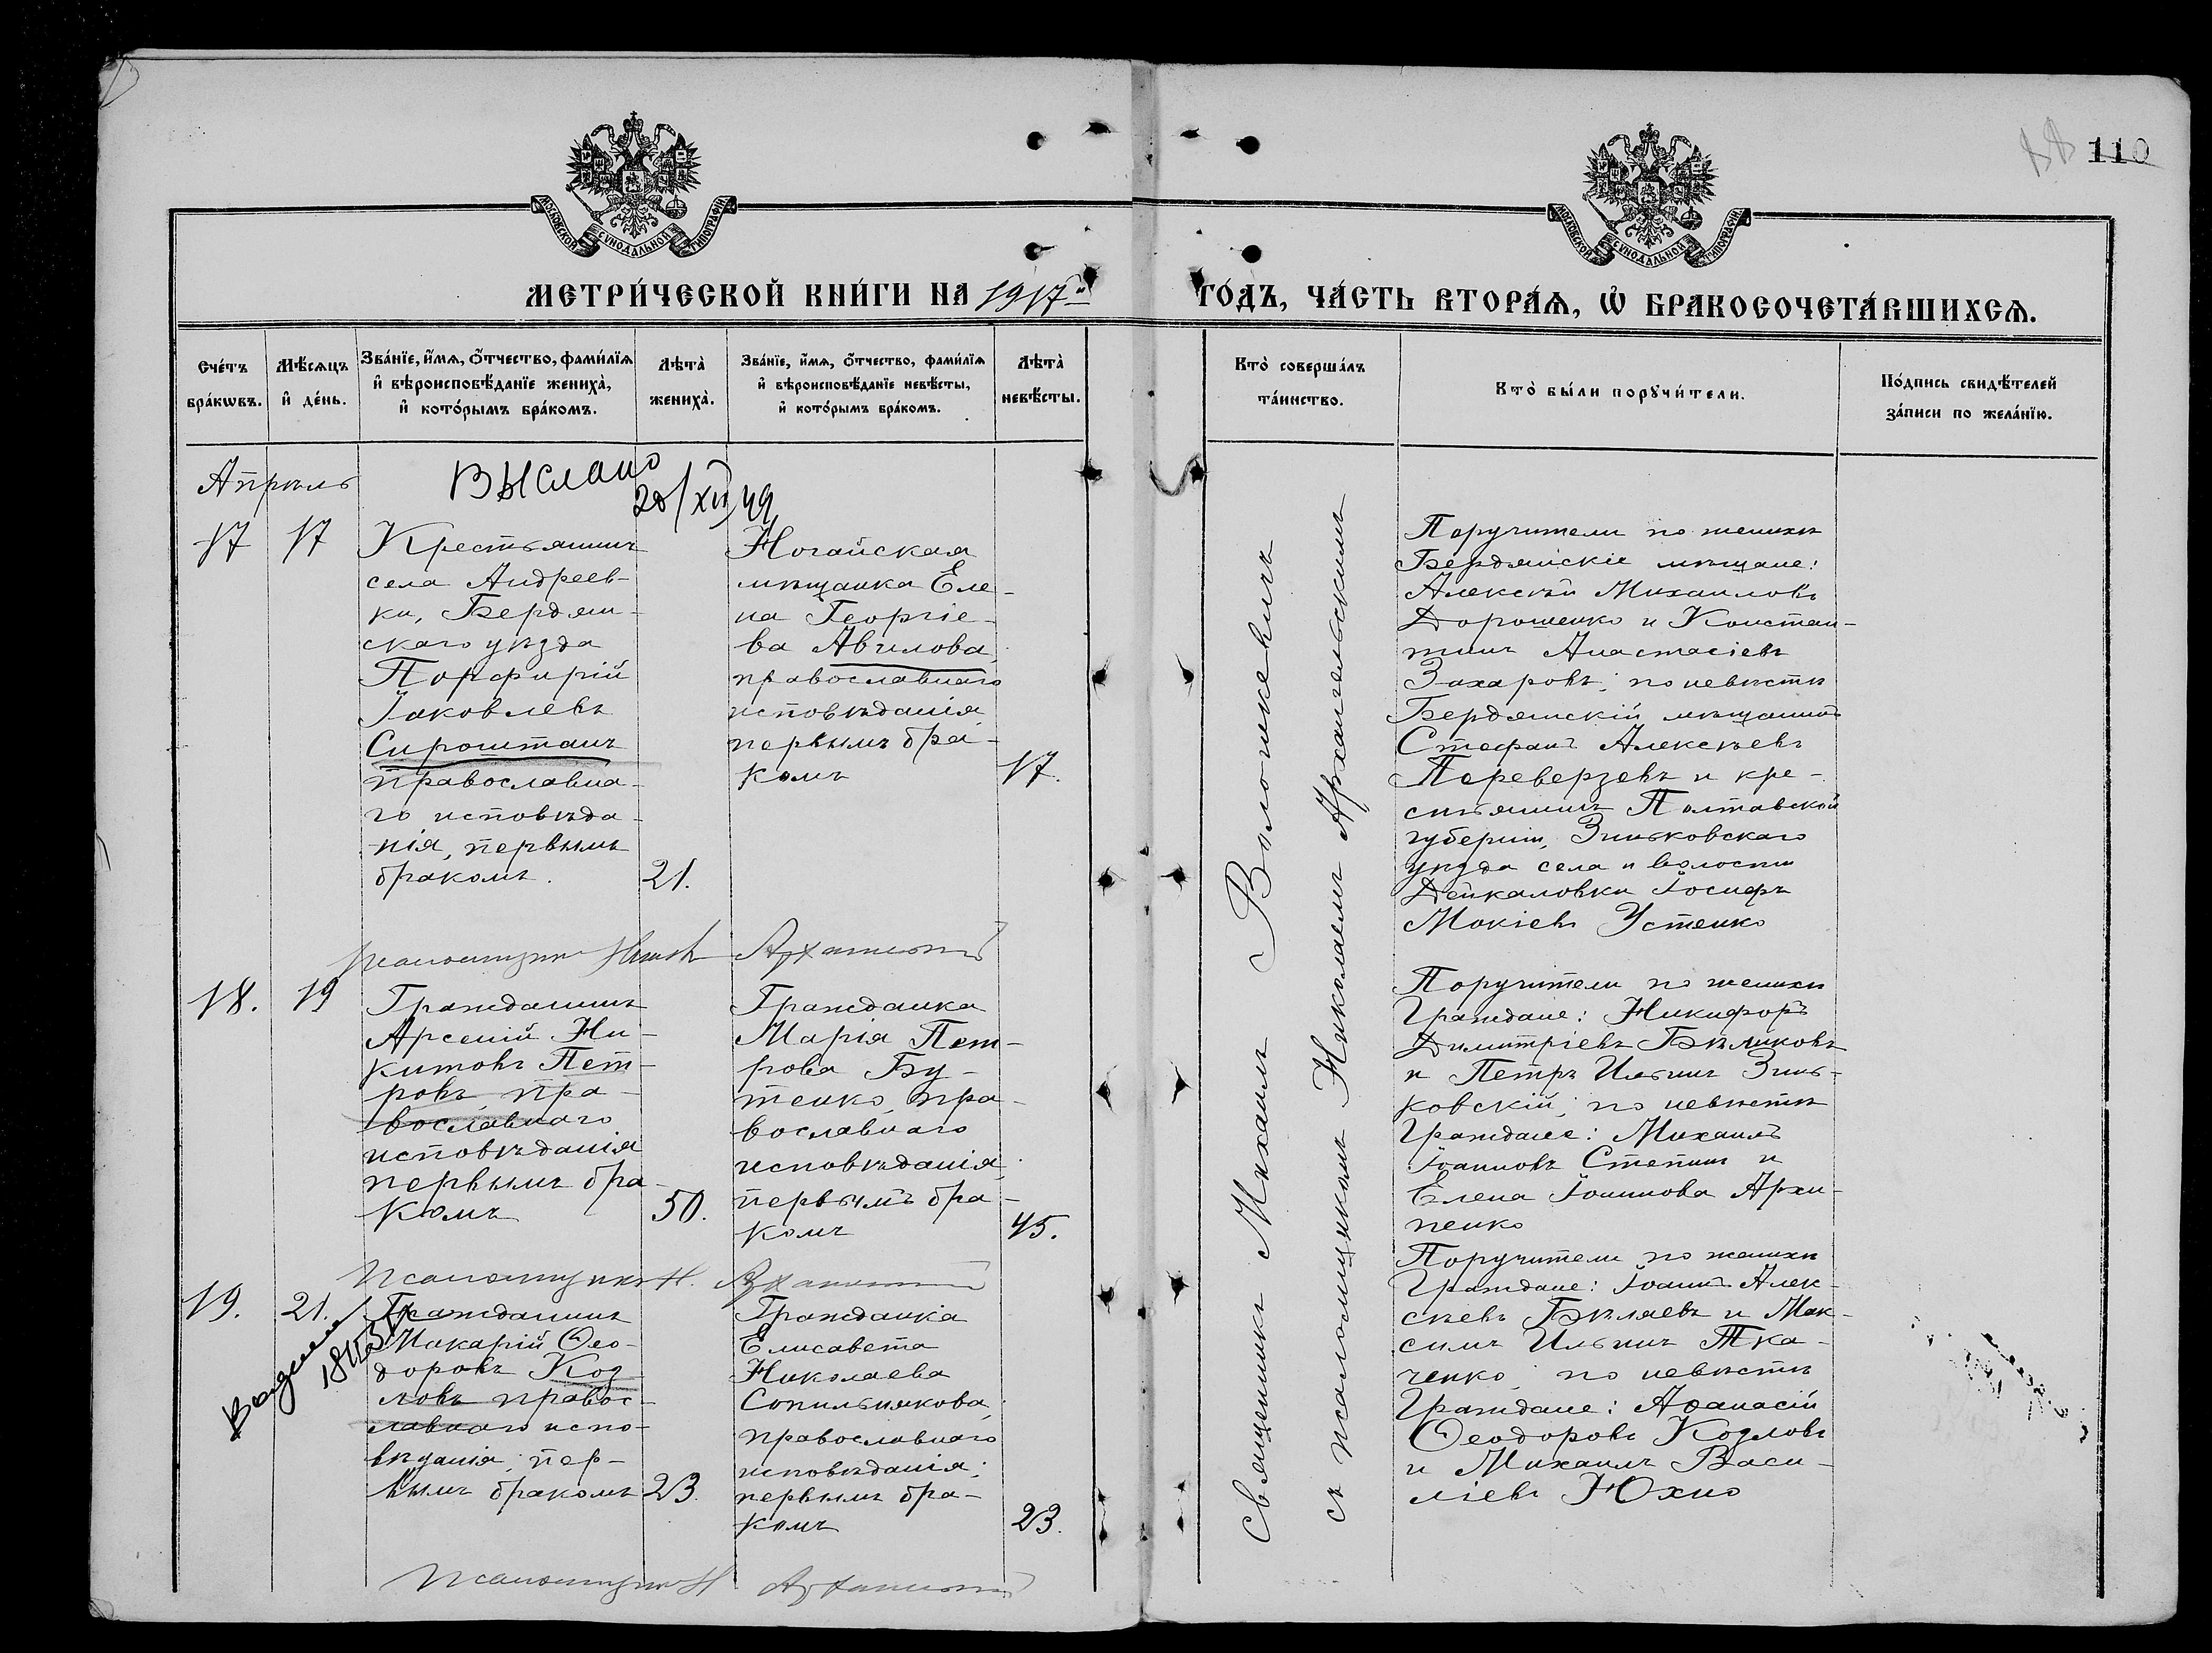 110
МОСКОВСКОЙ СѴНОДАЛЬНОЙ ТИПОГРАФІИ
МОСКОВСКОЙ СѴНОДАЛЬНОЙ ТИПОГРАФІИ
МЕТРИ́ЧЕСКОЙ КНИ́ГИ НА 1917й ГО́ДЪ, ЧА́СТЬ ВТОРА́Я, Ѡ БРАКОСОЧЕТА́ВШИХСЯ.
Сче́тъ бра́кѡвъ.
Мѣ́сяцъ и де́нь.
Зва́нїе, и́мя, о́тчество, фами́лїя
и вѣроисповѣ́данїе жениха̀,
и кото́рымъ бра́комъ.
Лѣта̀ жениха̀.
Зва́нїе, и́мя, о́тчество, фами́лїя
и вѣроисповѣ́данїе невѣ́сты,
и кото́рымъ бра́комъ.
Лѣта̀ невѣ́сты.
Кто̀ соверша́лъ та́инство.
Кто̀ бы́ли порꙋчи́тели.
По́дпись свидѣ́телей
за́писи по жела́нїю.
Апрѣль
Выслано
20/XII 49
17
17
Крестьянинъ
села Андреев-
ки, Бердян-
скаго уѣзда
Порфирій
Іаковлевъ
Сироштанъ
православна-
го исповѣда-
нія, первымъ
бракомъ.
21.
Ногайская
мѣщанка Еле-
на Георгіе-
ва Авилова,
православнаго
исповѣданія,
первымъ бра-
комъ
17.
Поручители по женихѣ
Бердянскіе мѣщане:
Алексѣй Михаиловъ
Дорошенко и Констан-
тинъ Анастасіевъ
Захаровъ; по невѣстѣ
Бердянскій мѣщанинъ
Стефанъ Алексѣевъ
Переверзевъ и кре-
стьянинъ Полтавской
губерніи, Зиньковскаго
уѣзда села и волости
Дейкаловки Іосифъ
Мокіевъ Устенко
Псаломщикъ Архангельскій
18.
19
Гражданинъ
Арсеній Ни-
китовъ Пет-
ровъ, пра-
вославнаго
исповѣданія
первымъ бра-
комъ
50.
Гражданка
Марія Пет-
рова Бу-
тенко, пра-
вославнаго
исповѣданія,
первымъ бра-
комъ
45.
Поручители по женихѣ
Граждане: Никифоръ
Димитріевъ Бѣликовъ
и Петръ Ильинъ Зинь-
ковскій; по невѣстѣ
Граждане: Михаилъ
Іоанновъ Степинъ и
Елена Іоаннова Архи-
пенко
Псаломщикъ Н. Архангельскій
19.
21.
Гражданинъ
Макарій Ѳео-
доровъ Коз
ловъ правос-
лавнаго испо-
вѣданія, пер-
вымъ бракомъ
23.
Гражданка
Елисавета
Николаева
Сопильникова,
православнаго
исповѣданія;
первымъ бра-
комъ
23.
Поручители по женихѣ
Граждане: Іоаннъ Алек-
сѣевъ Бѣляевъ и Мак-
симъ Ильинъ Тка-
ченко, по невѣстѣ
Граждане: Аѳанасій
Ѳеодоровъ Козловъ
и Михаилъ Васи-
ліевъ Юхно
Псаломщикъ Н Архангельскій
Священникъ Михаилъ Воложкевичъ
съ псаломщикомъ Николаемъ Архангельскимъ